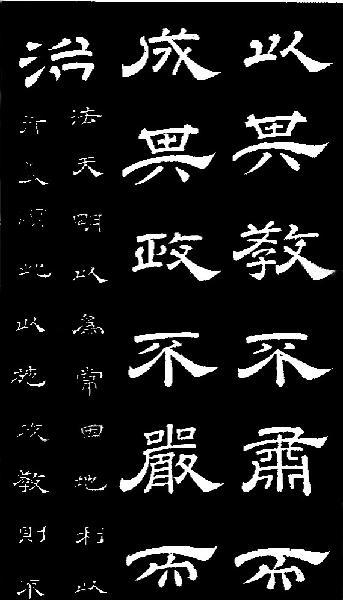 以其教不肅而
成其政不嚴而
治
法天明以為常因地利以
行義順此以施政教則不